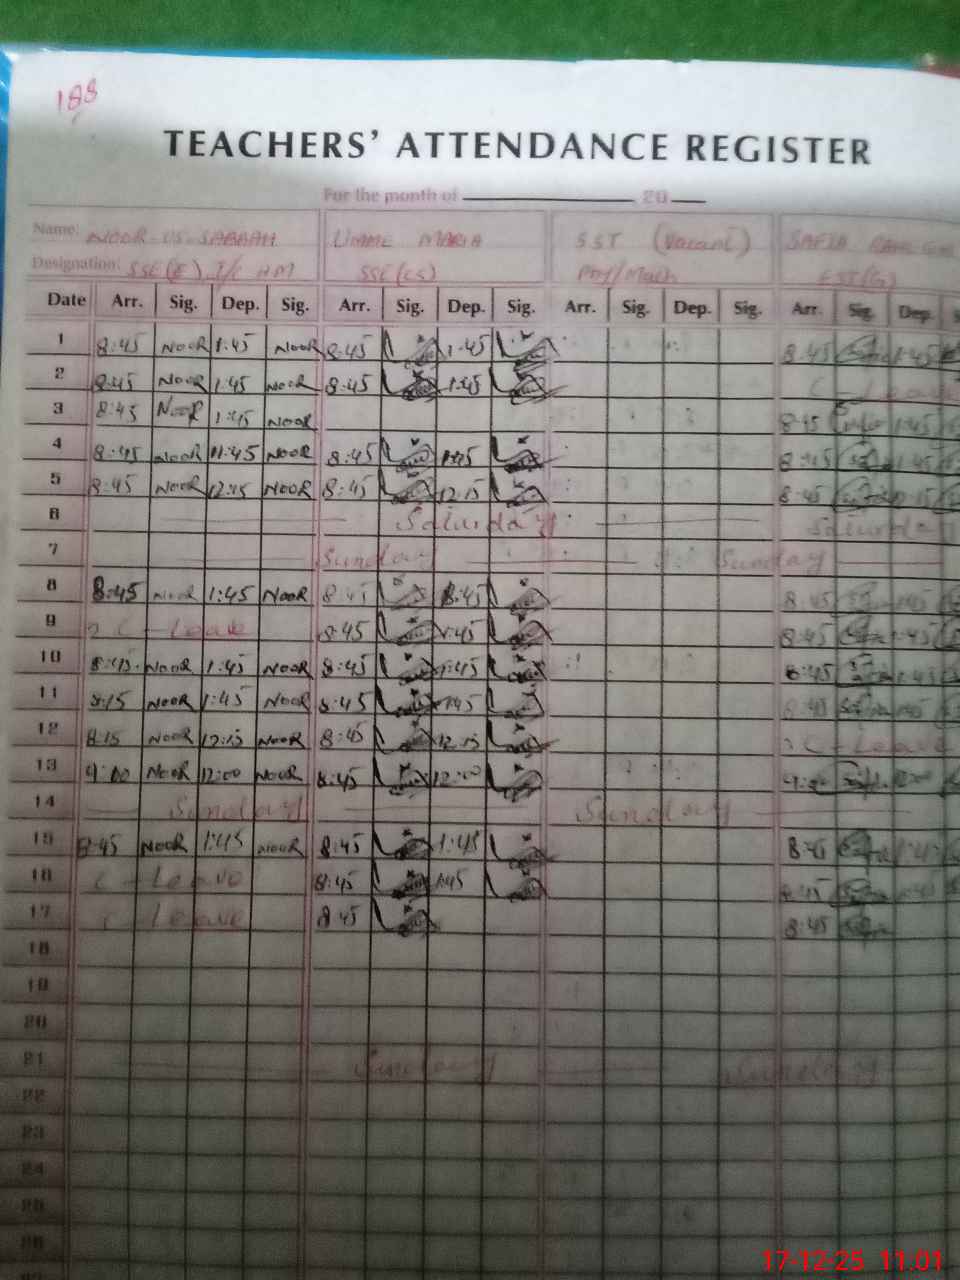 188
TEACHERS' ATTENDANCE REGISTER
For the month of 20
Name: NOOR-US-SABAAH UMME MARIA SST (Vacant) SAFIA
Designation: SSE(E), I/C HM SSE(CS) Phy/Math EST(G)
Date Arr. Sig. Dep. Sig. Arr. Sig. Dep. Sig. Arr. Sig. Dep. Sig. Arr. Sig. Dep.
1 8:45 NOOR 1:45 NOOR 8:45 1:45 8:45 1:45
2 8:45 NOOR 1:45 NOOR 8:45 1:45 C - Leave
3 8:45 NOOR 1:45 NOOR 8:45 1:45
4 8:45 NOOR 1:45 NOOR 8:45 1:45 8:45 1:45
5 8:45 NOOR 12:15 NOOR 8:45 12:15 8:45 12:15
6 Saturday Saturday
7 Sunday Sunday
8 8:45 NOOR 1:45 NOOR 8:45 1:45 8:45 1:45
9 C - Leave 8:45 1:45 8:45 1:45
10 8:45 NOOR 1:45 NOOR 8:45 1:45 8:45 1:45
11 8:15 NOOR 1:45 NOOR 8:45 1:45 8:45 1:45
12 8:15 NOOR 12:15 NOOR 8:45 12:15 C - Leave
13 9:00 NOOR 12:00 NOOR 8:45 12:00 12:00
14 Sunday Sunday
15 8:45 NOOR 1:45 NOOR 8:45 1:45 8:45 1:45
16 C - Leave 8:45 1:45 8:45 1:45
17 C - Leave 8:45 8:45
18
19
20
21 Sunday Sunday
22
23
24
25
26
17-12-25 11:01